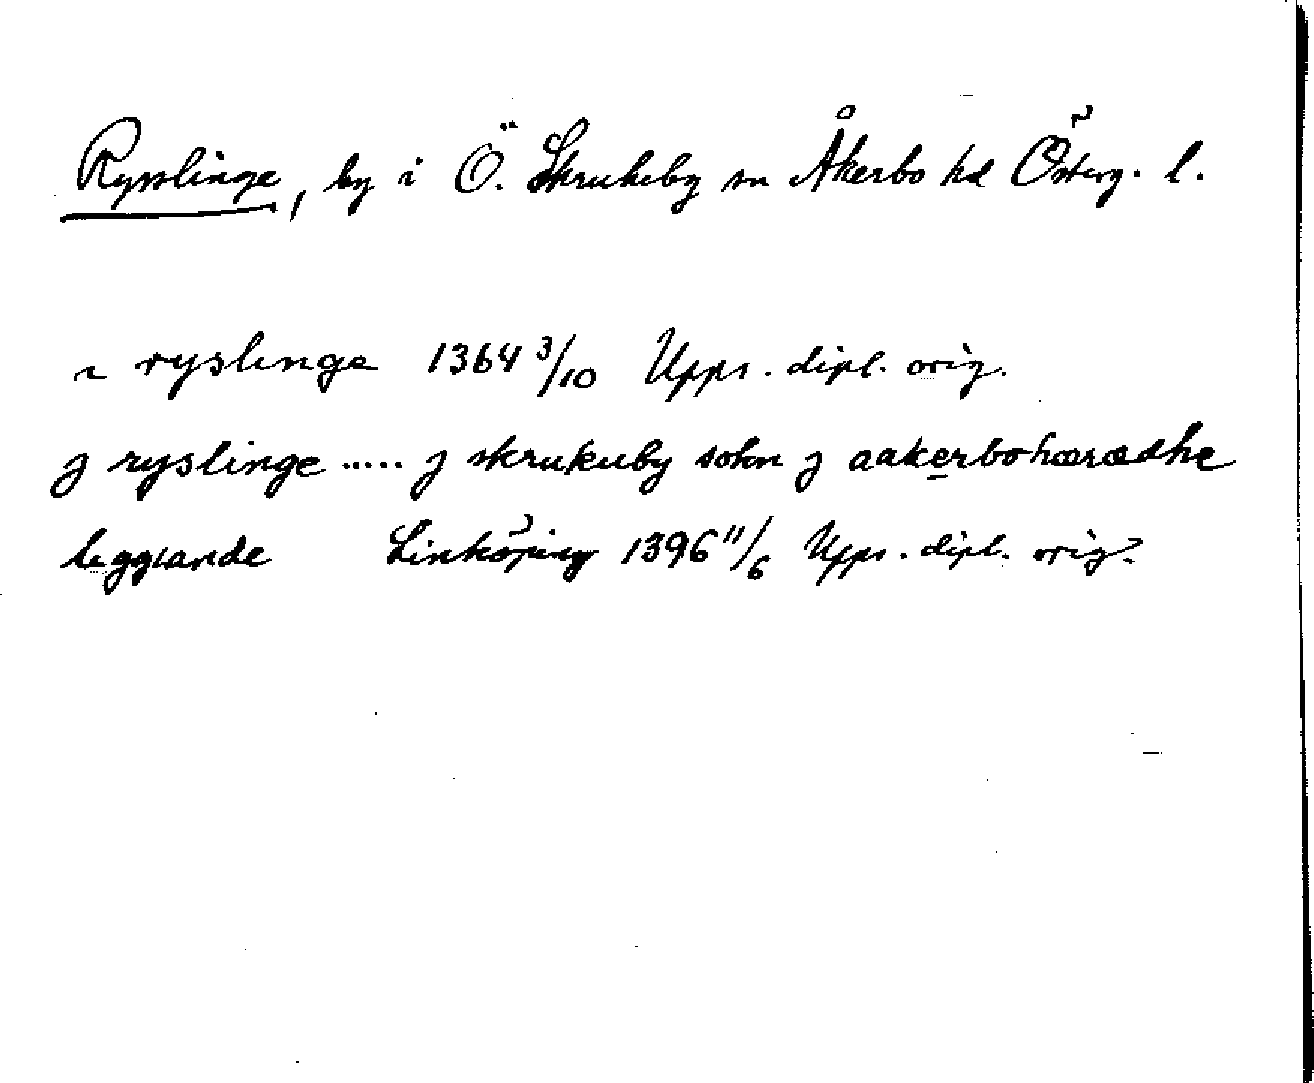 Rysslinge, by i Ö. Skrukeby sn Åkerbo hd Österg. l.
i ryslinge 1364 3/10 Upps. dipl. orig.
j ryslinge ..... j skrukuby sokn j aakerbohæradhe
leggiande Linköping 1396 11/6 Upps. dipl. orig.